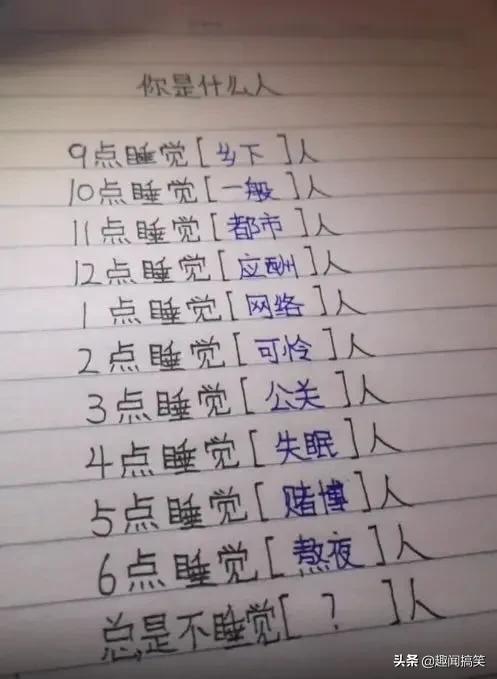 你是什么人
9点睡觉[乡下]人
10点睡觉[一般]人
11点睡觉[都市]人
12点睡觉[应酬]人
1点睡觉[网络]人
2点睡觉[可怜]人
3点睡觉[公关]人
4点睡觉[失眠]人
5点睡觉[赌博]人
6点睡觉[熬夜]人
总是不睡觉[?]人
头条 @趣闻搞笑